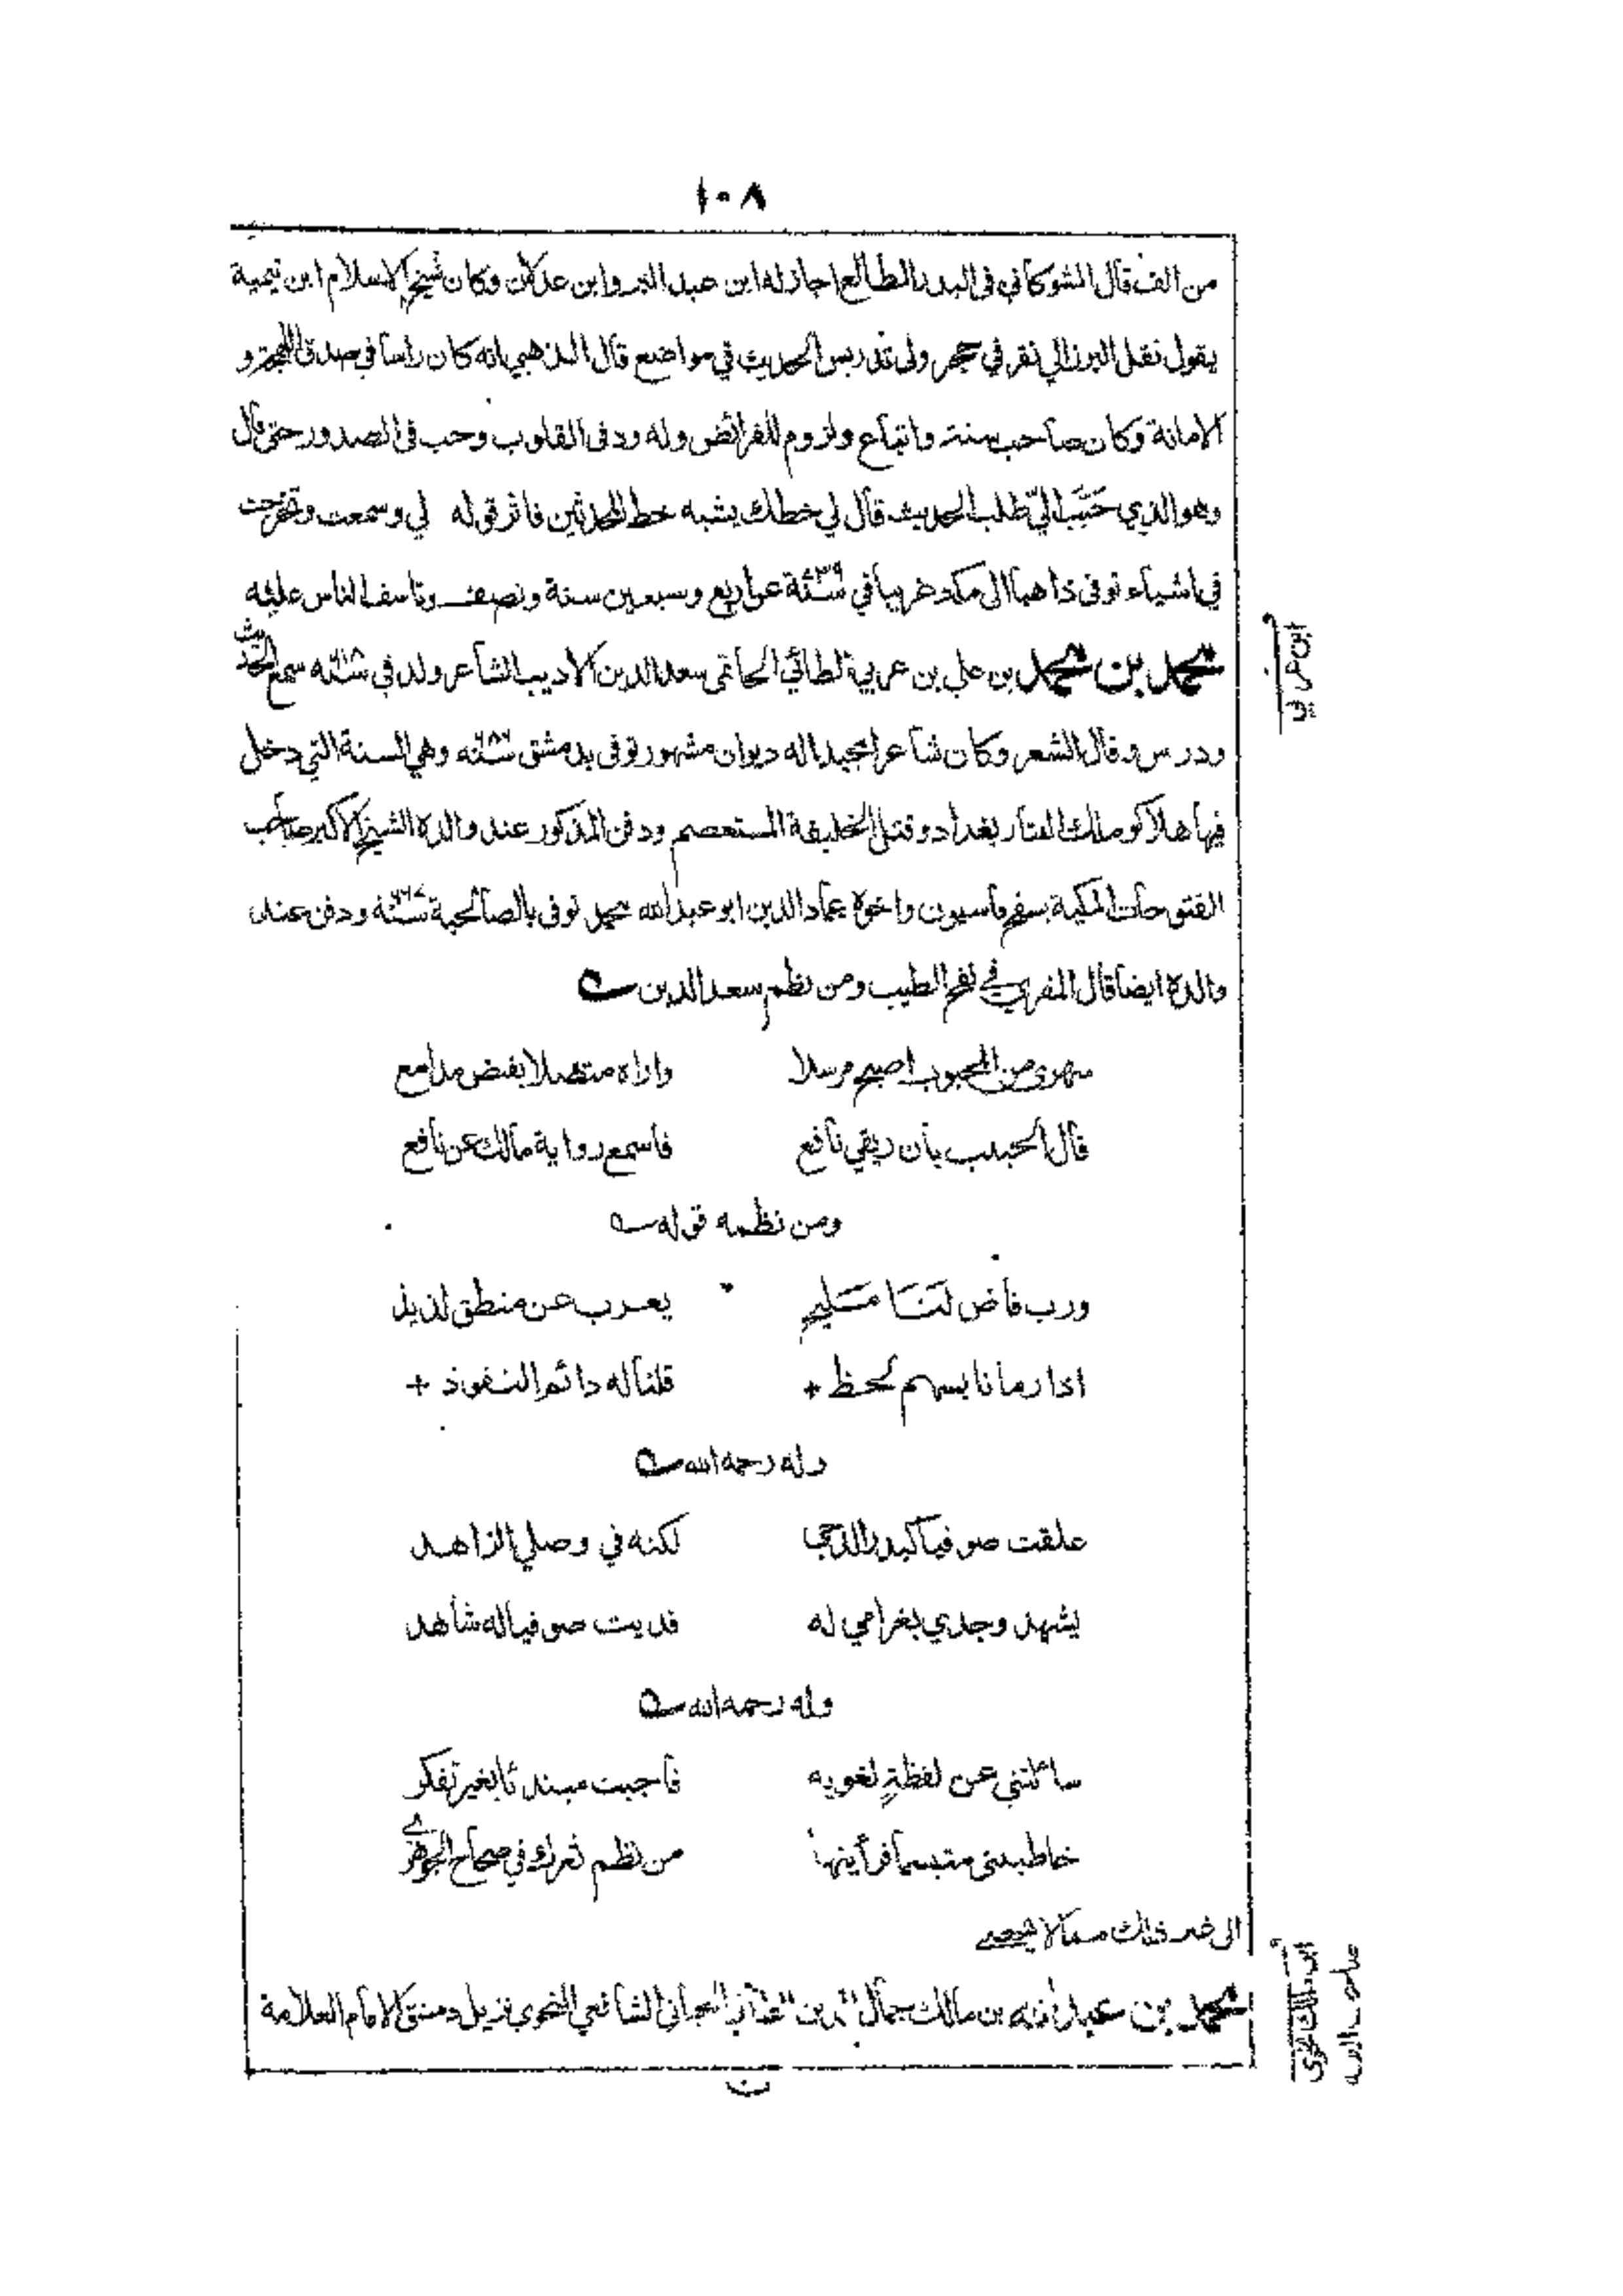 ١٠٨
من الف قال الشوكاني في البدر الطالع اجاز له ابن عبد البر وابن علان وكان شيخ الاسلام ابن تيمية
يقول نقل البرزالي نقر في حجر ولى تدريس الحديث في مواضع قال الذهبي انه كان راسا في صدق اللهجة و
الامانة وكان صاحب سنة واتباع ولزوم للفرائض وله ود في القلوب وحب في الصدور حتى قال
وهو الذي حَبَّب اليّ طلب الحديث قال لي خطك يشبه خط المحدثين فاثر قوله لي وسمعت وتخرجت
في اشياء توفى ذاهبا الى مكة غريبا في ٧٣٩ سنة عن اربع وسبعين سنة ونصف وتاسف الناس عليه
محمد بن محمد بن علي بن عربي الطائي الحاتمى سعد الدين الاديب الشاعر ولد في ٦١٨ سنه سمع الحديث
ودرس وقال الشعر وكان شاعرا مجيدا له ديوان مشهور توفى بدمشق ٦٥٦ سنه وهي السنة التي دخل
فيها هلاكو ملك التتار بغداد وقتل الخليفة المستعصم ودفن المذكور عند والده الشيخ الاكبر صاحب
الفتوحات المكية بسفح قاسيون واخوه عماد الدين ابو عبد الله محمد توفى بالصالحية ٦٦٧ سنة ودفن عند
والده ايضا قال المقري في نفح الطيب ومن نظم سعد الدين
سهرى من المحبوب اصبح مرسلا واراه متصلا بفيض مدامع
قال الحبيب بان ريقي نافع فاسمع رواية مالك عن نافع
ومن نظمه قوله
ورب قاض لنا مليح يعرب عن منطق لذيذ
اذا رمانا بسهم لحظ + قلنا له دائم النفوذ +
وله رحمه الله
علقت صوفيا كبدر الدجى لكنه في وصلي الزاهد
يشهد وجدي بغرامي له فديت صوفيا له شاهد
وله رحمه الله
سائلتني عن لفظةٍ لغويه فاجبت مبتدئا بغير تفكر
خاطبتني متبسما فرأيتها من نظم ثغرك في صحاح الجوهرى
الى غير ذلك مما لا يحصى
محمد بن عبد الله بن مالك جمال الدين الطائي الجياني الشافعي النحوي نزيل دمشق الامام العلامة
ابن عربي
ابن مالك النحوى